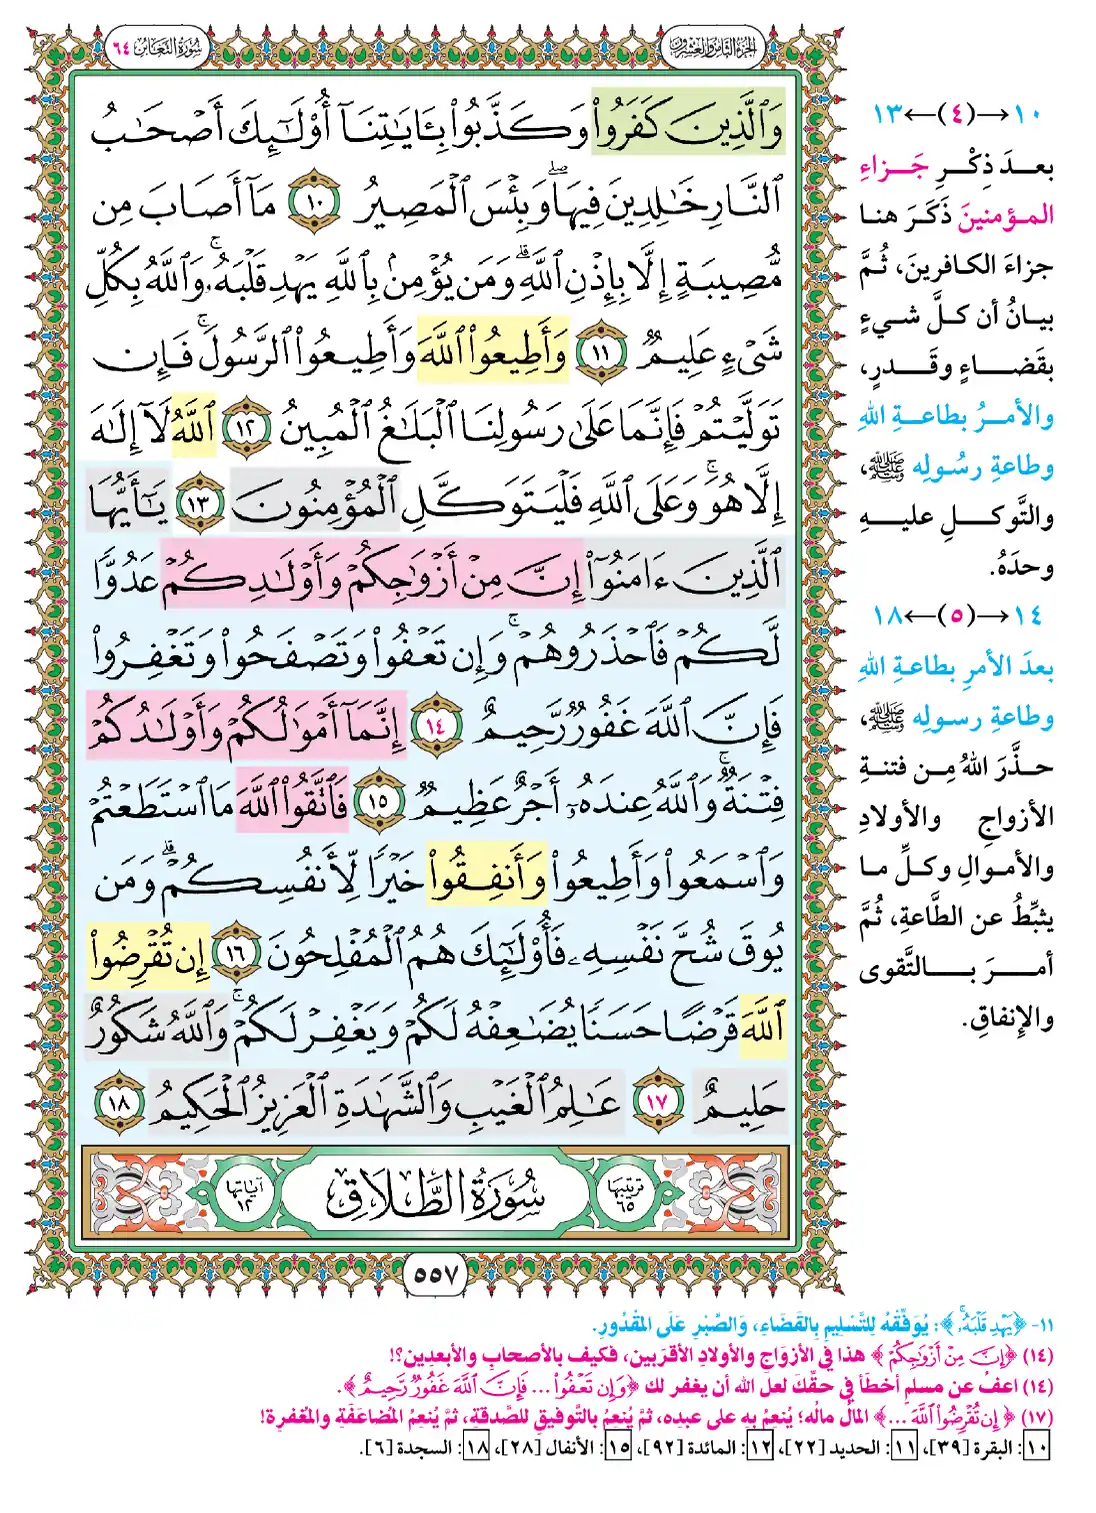 الجزء الثامن والعشرون
سورة التغابن ٦٤
وَٱلَّذِينَ كَفَرُوا۟ وَكَذَّبُوا۟ بِـَٔايَـٰتِنَآ أُو۟لَـٰٓئِكَ أَصْحَـٰبُ
ٱلنَّارِ خَـٰلِدِينَ فِيهَا ۖ وَبِئْسَ ٱلْمَصِيرُ ١٠ مَآ أَصَابَ مِن
مُّصِيبَةٍ إِلَّا بِإِذْنِ ٱللَّهِ ۗ وَمَن يُؤْمِنۢ بِٱللَّهِ يَهْدِ قَلْبَهُۥ ۚ وَٱللَّهُ بِكُلِّ
شَىْءٍ عَلِيمٌ ١١ وَأَطِيعُوا۟ ٱللَّهَ وَأَطِيعُوا۟ ٱلرَّسُولَ ۚ فَإِن
تَوَلَّيْتُمْ فَإِنَّمَا عَلَىٰ رَسُولِنَا ٱلْبَلَـٰغُ ٱلْمُبِينُ ١٢ ٱللَّهُ لَآ إِلَـٰهَ
إِلَّا هُوَ ۚ وَعَلَى ٱللَّهِ فَلْيَتَوَكَّلِ ٱلْمُؤْمِنُونَ ١٣ يَـٰٓأَيُّهَا
ٱلَّذِينَ ءَامَنُوٓا۟ إِنَّ مِنْ أَزْوَٰجِكُمْ وَأَوْلَـٰدِكُمْ عَدُوًّا
لَّكُمْ فَٱحْذَرُوهُمْ ۚ وَإِن تَعْفُوا۟ وَتَصْفَحُوا۟ وَتَغْفِرُوا۟
فَإِنَّ ٱللَّهَ غَفُورٌ رَّحِيمٌ ١٤ إِنَّمَآ أَمْوَٰلُكُمْ وَأَوْلَـٰدُكُمْ
فِتْنَةٌ ۚ وَٱللَّهُ عِندَهُۥٓ أَجْرٌ عَظِيمٌ ١٥ فَٱتَّقُوا۟ ٱللَّهَ مَا ٱسْتَطَعْتُمْ
وَٱسْمَعُوا۟ وَأَطِيعُوا۟ وَأَنفِقُوا۟ خَيْرًا لِّأَنفُسِكُمْ ۗ وَمَن
يُوقَ شُحَّ نَفْسِهِۦ فَأُو۟لَـٰٓئِكَ هُمُ ٱلْمُفْلِحُونَ ١٦ إِن تُقْرِضُوا۟
ٱللَّهَ قَرْضًا حَسَنًا يُضَـٰعِفْهُ لَكُمْ وَيَغْفِرْ لَكُمْ ۚ وَٱللَّهُ شَكُورٌ
حَلِيمٌ ١٧ عَـٰلِمُ ٱلْغَيْبِ وَٱلشَّهَـٰدَةِ ٱلْعَزِيزُ ٱلْحَكِيمُ ١٨
ترتيبها ٦٥
سُورَةُ الطَّلَاقِ
آياتها ١٢
٥٥٧
١٠→(٤)←١٣
بعدَ ذِكْرِ جَزاءِ
المؤمنينَ ذَكَرَ هنا
جزاءَ الكافرينَ، ثُمَّ
بيانُ أن كلَّ شيءٍ
بقَضاءٍ وقَدرٍ،
والأمرُ بطاعةِ اللهِ
وطاعةِ رسُولِه ﷺ،
والتَّوكلِ عليهِ
وحدَهُ.
١٤→(٥)←١٨
بعدَ الأمرِ بطاعةِ اللهِ
وطاعةِ رسولِه ﷺ،
حذَّرَ اللهُ مِن فتنةِ
الأزواجِ والأولادِ
والأموالِ وكلِّ ما
يثبِّطُ عن الطَّاعةِ، ثُمَّ
أمرَ بالتَّقوى
والإنفاقِ.
١١- ﴿يَهْدِ قَلْبَهُۥ ۚ﴾: يُوَفِّقْهُ لِلتَّسْلِيمِ بِالقَضَاءِ، وَالصَّبْرِ عَلَى المَقْدُورِ.
(١٤) ﴿إِنَّ مِنْ أَزْوَٰجِكُمْ﴾ هذا في الأزوَاج والأولادِ الأقرَبين، فكيف بالأصحابِ والأبعدِين؟!
(١٤) اعفُ عن مسلمٍ أخطأ في حقِّكَ لعل الله أن يغفر لك ﴿وَإِن تَعْفُوا۟ ... فَإِنَّ ٱللَّهَ غَفُورٌ رَّحِيمٌ﴾.
(١٧) ﴿إِن تُقْرِضُوا۟ ٱللَّهَ ...﴾ المالُ مالُه؛ يُنعِمُ به على عبدِه، ثمَّ يُنعِمُ بالتَّوفيقِ للصَّدقةِ، ثمَّ يُنعِمُ المُضاعَفَةِ والمَغفرةِ!
١٠: البقرة [٣٩]، ١١: الحديد [٢٢]، ١٢: المائدة [٩٢]، ١٥: الأنفال [٢٨]، ١٨: السجدة [٦].